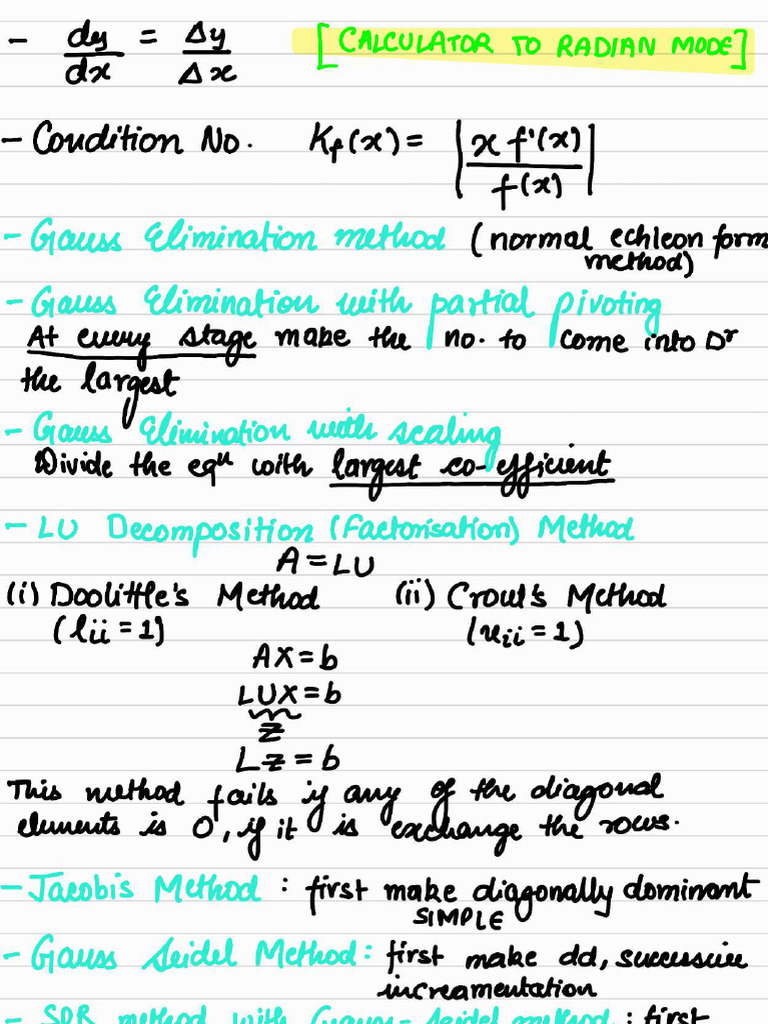 - dy/dx = Δy/Δx [CALCULATOR TO RADIAN MODE]
- Condition No. Kf(x) = | x f'(x) / f(x) |
- Gauss Elimination method (normal echleon form method)
- Gauss Elimination with partial pivoting
At every stage make the no. to come into Dr
the largest
- Gauss Elimination with scaling
Divide the eqn with largest co-efficient
- LU Decomposition (Factorisation) Method
A = LU
(i) Doolittle's Method (ii) Crout's Method
(lii = 1) (uii = 1)
AX = b
LUX = b
z
Lz = b
This method fails if any of the diagonal
elements is 0, if it is exchange the rows.
- Jacobis Method : first make diagonally dominant
SIMPLE
- Gauss Seidel Method : first make dd, successive
increamentation
- SOR method with Gauss-Seidel method : first